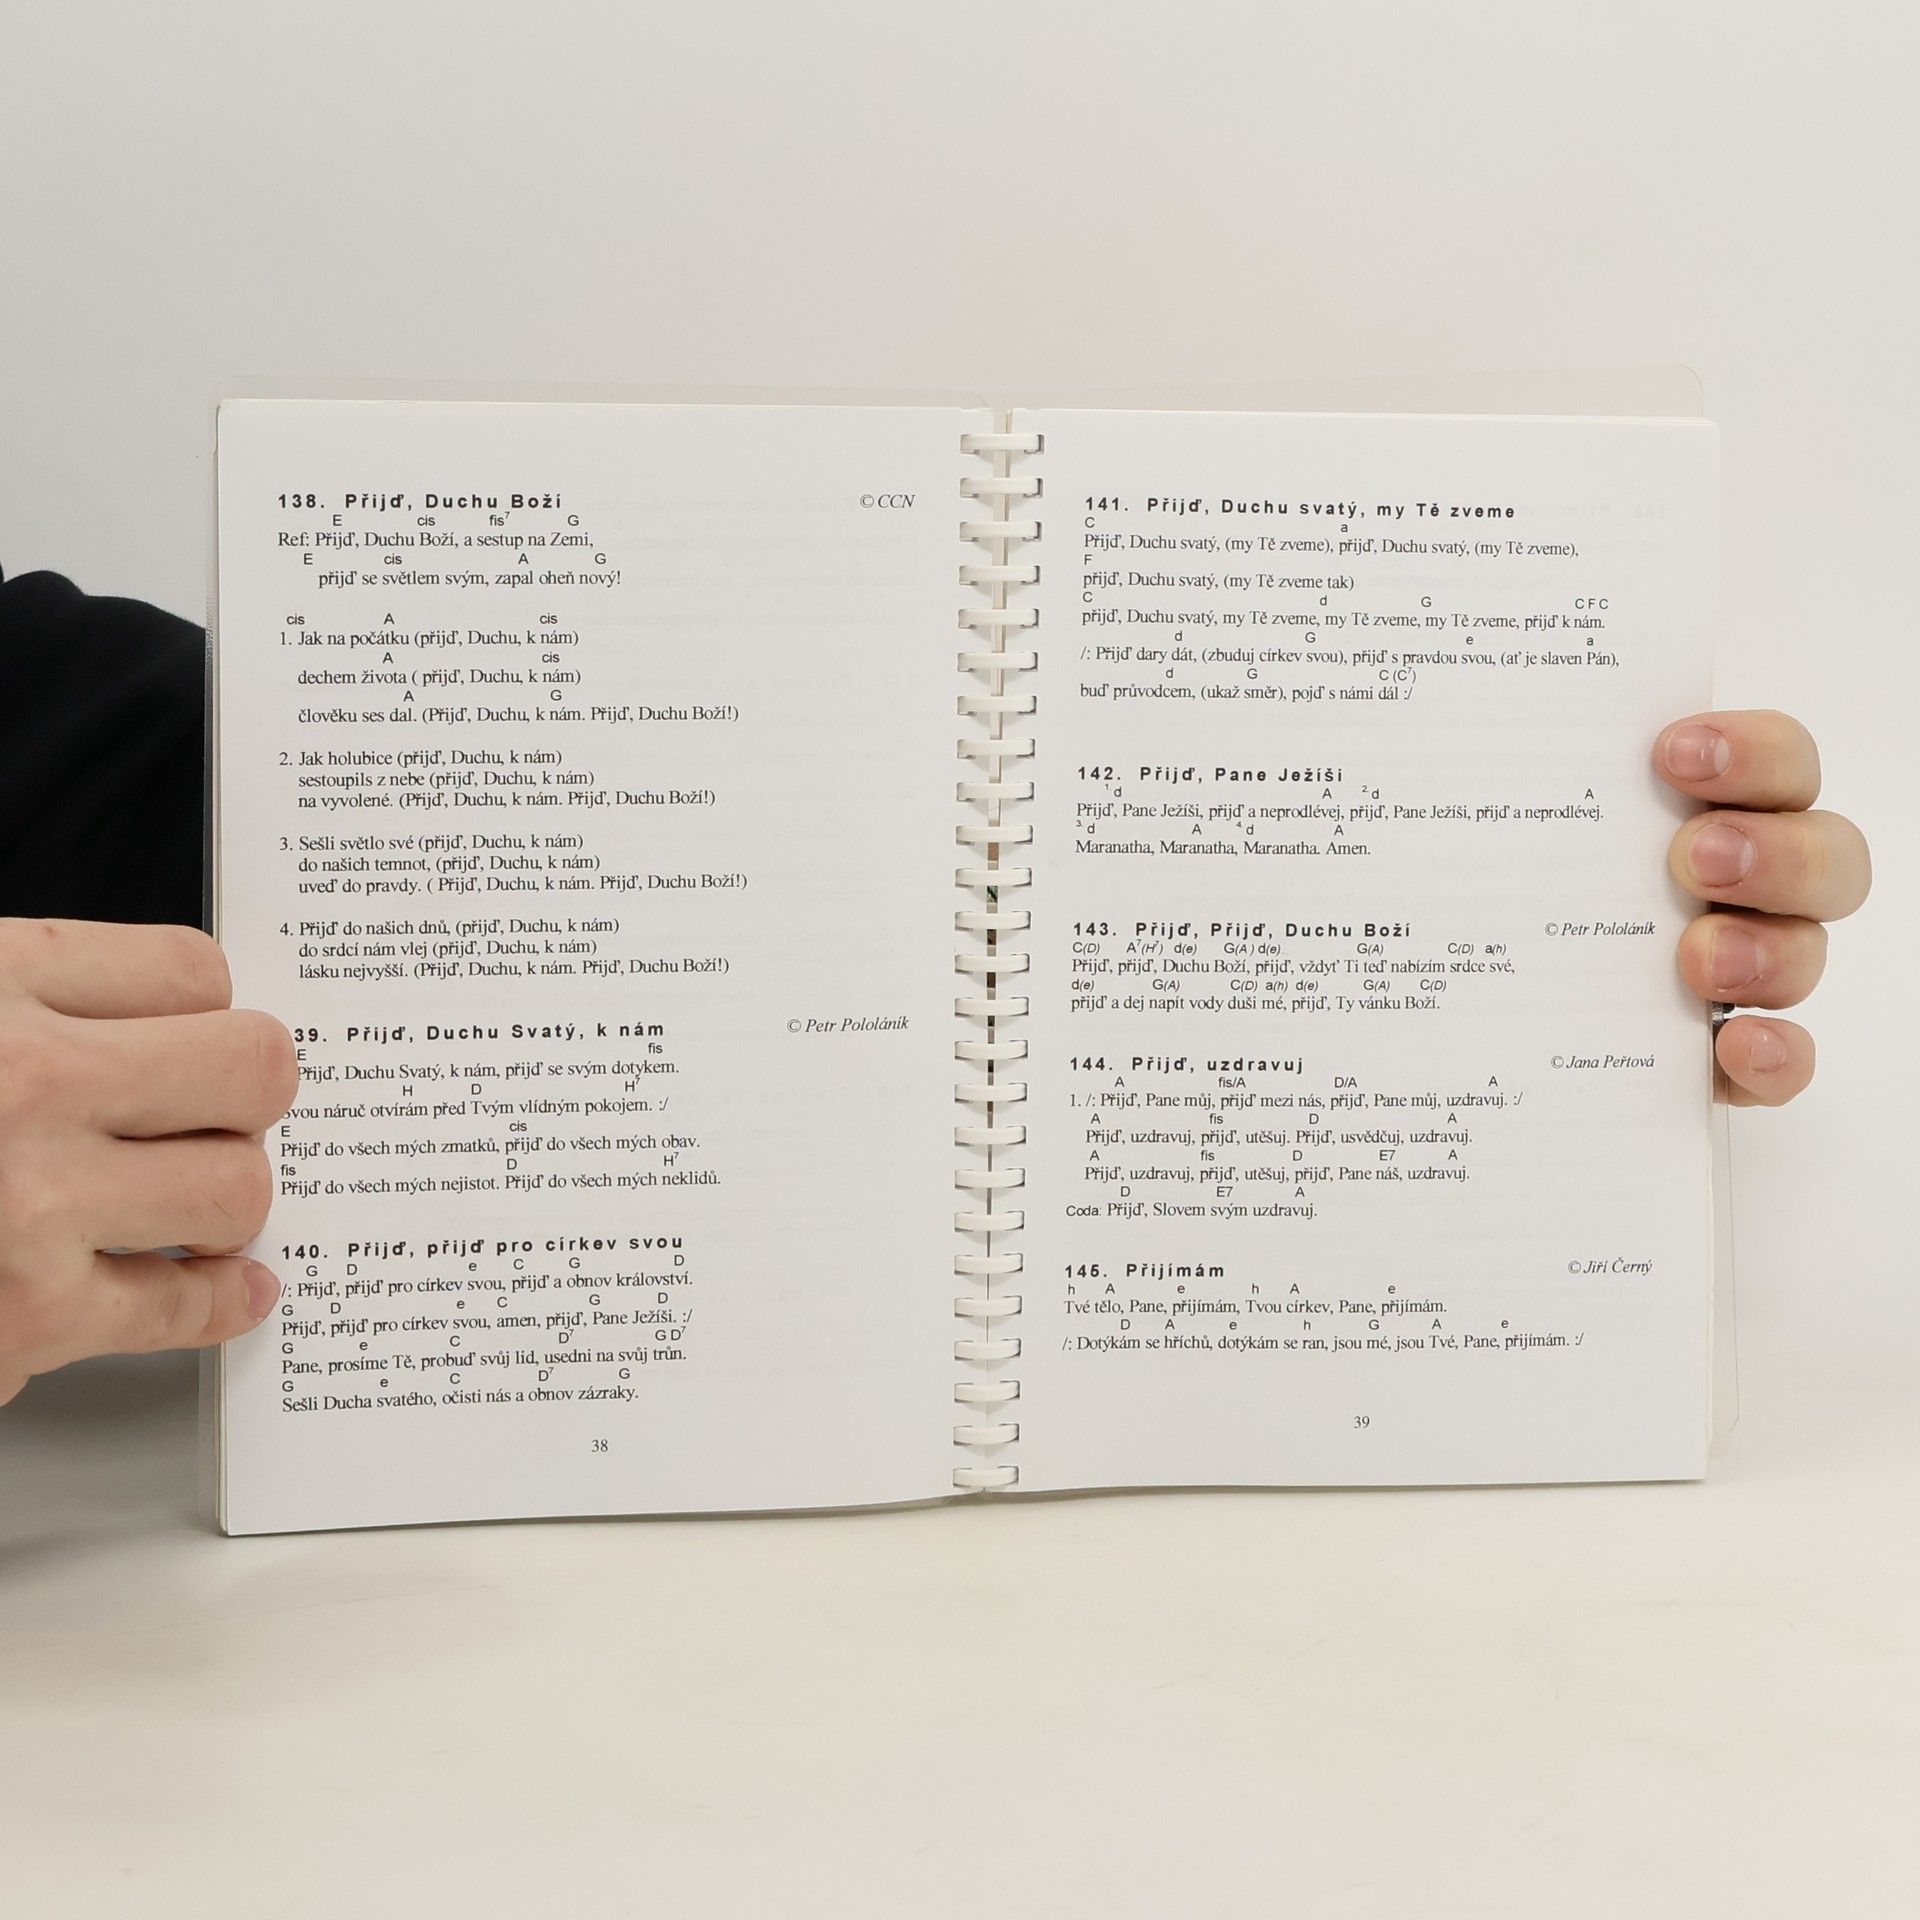 138. Přijď, Duchu Boží ©CCN
E cis fis7 G
Ref: Přijď, Duchu Boží, a sestup na Zemi,
E cis A G
přijď se světlem svým, zapal oheň nový!
cis A cis
1. Jak na počátku (přijď, Duchu, k nám)
A cis
dechem života ( přijď, Duchu, k nám)
A G
člověku ses dal. (Přijď, Duchu, k nám. Přijď, Duchu Boží!)
2. Jak holubice (přijď, Duchu, k nám)
sestoupils z nebe (přijď, Duchu, k nám)
na vyvolené. (Přijď, Duchu, k nám. Přijď, Duchu Boží!)
3. Sešli světlo své (přijď, Duchu, k nám)
do našich temnot, (přijď, Duchu, k nám)
uveď do pravdy. ( Přijď, Duchu, k nám. Přijď, Duchu Boží!)
4. Přijď do našich dnů, (přijď, Duchu, k nám)
do srdcí nám vlej (přijď, Duchu, k nám)
lásku nejvyšší. (Přijď, Duchu, k nám. Přijď, Duchu Boží!)
39. Přijď, Duchu Svatý, k nám © Petr Pololáník
E fis
Přijď, Duchu Svatý, k nám, přijď se svým dotykem.
H D H7
Svou náruč otvírám před Tvým vlídným pokojem. :/
E cis
Přijď do všech mých zmatků, přijď do všech mých obav.
fis D H7
Přijď do všech mých nejistot. Přijď do všech mých neklidů.
140. Přijď, přijď pro církev svou
G D e C G D
/: Přijď, přijď pro církev svou, přijď a obnov království.
G D e C G D
Přijď, přijď pro církev svou, amen, přijď, Pane Ježíši. :/
G e C D7 G D7
Pane, prosíme Tě, probuď svůj lid, usedni na svůj trůn.
G e C D7 G
Sešli Ducha svatého, očisti nás a obnov zázraky.
38
141. Přijď, Duchu svatý, my Tě zveme
C a
Přijď, Duchu svatý, (my Tě zveme), přijď, Duchu svatý, (my Tě zveme),
F
přijď, Duchu svatý, (my Tě zveme tak)
C d G C F C
přijď, Duchu svatý, my Tě zveme, my Tě zveme, my Tě zveme, přijď k nám.
d G e a
/: Přijď dary dát, (zbuduj církev svou), přijď s pravdou svou, (ať je slaven Pán),
d G C (C7)
buď průvodcem, (ukaž směr), pojď s námi dál :/
142. Přijď, Pane Ježíši
1. d A 2. d A
Přijď, Pane Ježíši, přijď a neprodlévej, přijď, Pane Ježíši, přijď a neprodlévej.
3. d A 4. d A
Maranatha, Maranatha, Maranatha. Amen.
143. Přijď, Přijď, Duchu Boží © Petr Pololáník
C(D) A7(H7) d(e) G(A) d(e) G(A) C(D) a(h)
Přijď, přijď, Duchu Boží, přijď, vždyť Ti teď nabízím srdce své,
d(e) G(A) C(D) a(h) d(e) G(A) C(D)
přijď a dej napít vody duši mé, přijď, Ty vánku Boží.
144. Přijď, uzdravuj © Jana Peřtová
A fis/A D/A A
1. /: Přijď, Pane můj, přijď mezi nás, přijď, Pane můj, uzdravuj. :/
A fis D A
Přijď, uzdravuj, přijď, utěšuj. Přijď, usvědčuj, uzdravuj.
A fis D E7 A
Přijď, uzdravuj, přijď, utěšuj, přijď, Pane náš, uzdravuj.
D E7 A
Coda: Přijď, Slovem svým uzdravuj.
145. Přijímám © Jiří Černý
h A e h A e
Tvé tělo, Pane, přijímám, Tvou církev, Pane, přijímám.
D A e h G A e
/: Dotýkám se hříchů, dotýkám se ran, jsou mé, jsou Tvé, Pane, přijímám. :/
39